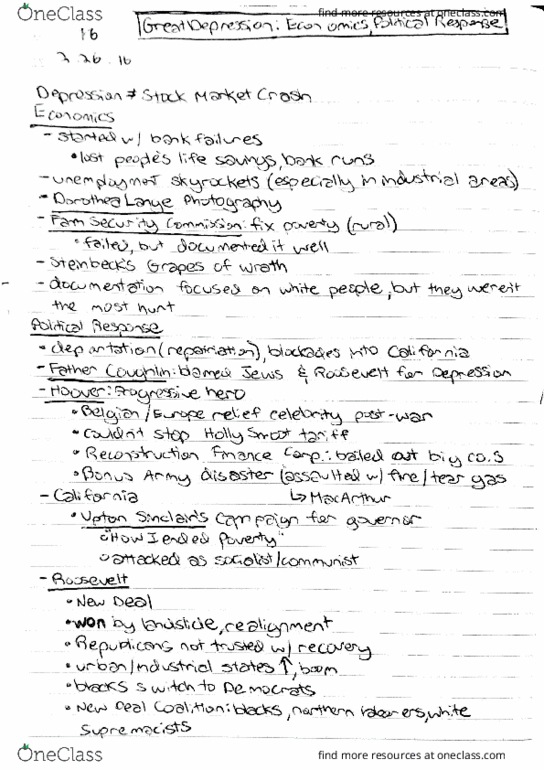 OneClass
find more resources at oneclass.com
Great Depression: Economics, Political Response
16
2.26.16
Depression ≠ Stock Market Crash
Economics
- started w/ bank failures
• lost people's life savings, bank runs
- unemployment skyrockets (especially in industrial areas)
- Dorothea Lange Photography
- Fam Security Commission: fix poverty (rural)
• failed, but documented it well
- Steinbeck's Grapes of Wrath
- documentation focused on white people, but they weren't
the most hurt
Political Response
- deportation (repatriation), blockades into California
- Father Coughlin: blamed Jews & Roosevelt for Depression
- Hoover: Progressive hero
• Belgian/Europe relief celebrity post-war
• Couldn't stop Holly Smoot tariff
• Reconstruction Finance Corp.: bailed out big co.s
• Bonus Army disaster (assaulted w/ fire/tear gas
↳ MacArthur
- California
• Upton Sinclair's campaign for governor
○ "How I ended Poverty"
○ attacked as socialist/communist
- Roosevelt
• New Deal
• won by landslide, realignment
• Republicans not trusted w/ recovery
• urban/industrial states ↑, boom
• blacks switch to Democrats
• New Deal Coalition: blacks, northern laborers, white
supremacists
OneClass
find more resources at oneclass.com